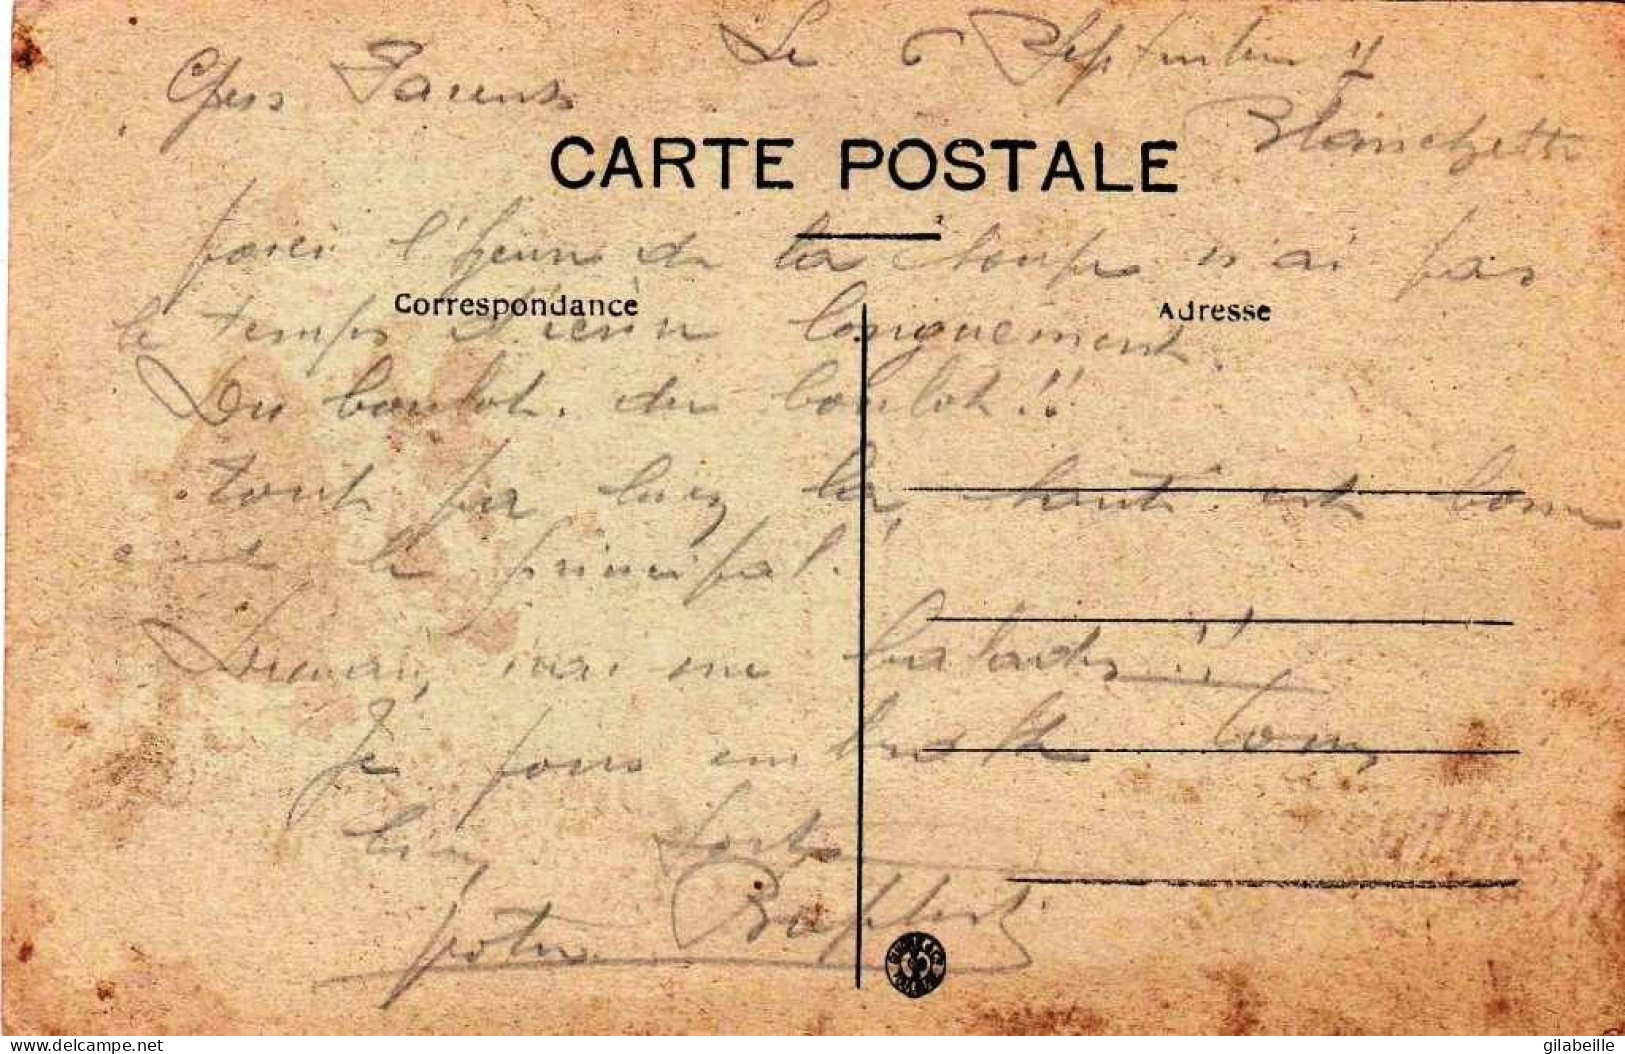 Le 6 Septembre
Chers Parents
Blanchette
CARTE POSTALE
voici l'heure de la soupe n'ai pas
Correspondance
Adresse
le temps d'écrire longuement.
Du boulot, du boulot!!
tout va bien la santé est bonne
c'est le principal!
Demain, irai me balader!!
Je vous embrasse tous
bien fort
votre Baptiste
delcampe.net
gilabeille